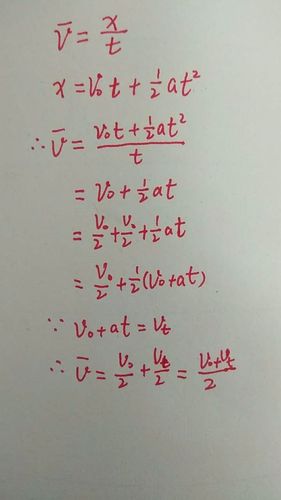 v̄ = x/t
x = v₀t + ½at²
∴ v̄ = (v₀t + ½at²)/t
= v₀ + ½at
= v₀/2 + v₀/2 + ½at
= v₀/2 + ½(v₀+at)
∵ v₀+at = vₜ
∴ v̄ = v₀/2 + vₜ/2 = (v₀+vₜ)/2